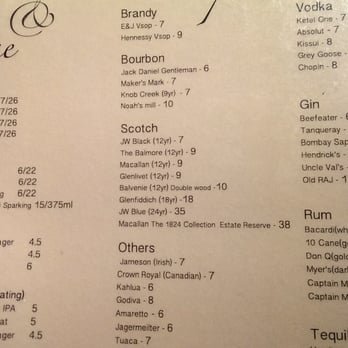 &
7/26
7/26
7/26
7/26
6/22
6/22
6/22
Sparking 15/375ml
4.5
4.5
6
IPA 5
5
4.5
Brandy
E&J Vsop - 7
Hennessy Vsop - 9
Bourbon
Jack Daniel Gentleman - 6
Maker's Mark - 7
Knob Creek (9yr) - 7
Noah's mill - 10
Scotch
JW Black (12yr) - 7
The Balmore (12yr) - 9
Macallan (12yr) - 9
Glenlivet (12yr) - 9
Balvenie (12yr) Double wood - 10
Glenfiddich (18yr) - 18
JW Blue (24yr) - 35
Macallan The 1824 Collection Estate Reserve - 38
Others
Jameson (Irish) - 7
Crown Royal (Canadian) - 7
Kahlua - 6
Godiva - 8
Amaretto - 6
Jagermeiter - 6
Tuaca - 7
Vodka
Ketel One - 7
Absolut - 7
Kissui - 8
Grey Goose
Chopin - 8
Gin
Beefeater - 6
Tanqueray
Bombay
Hendrick's
Uncle Val's
Old RAJ
Rum
Bacardi
10 Cane
Don Q
Myer's
Captain
Captain